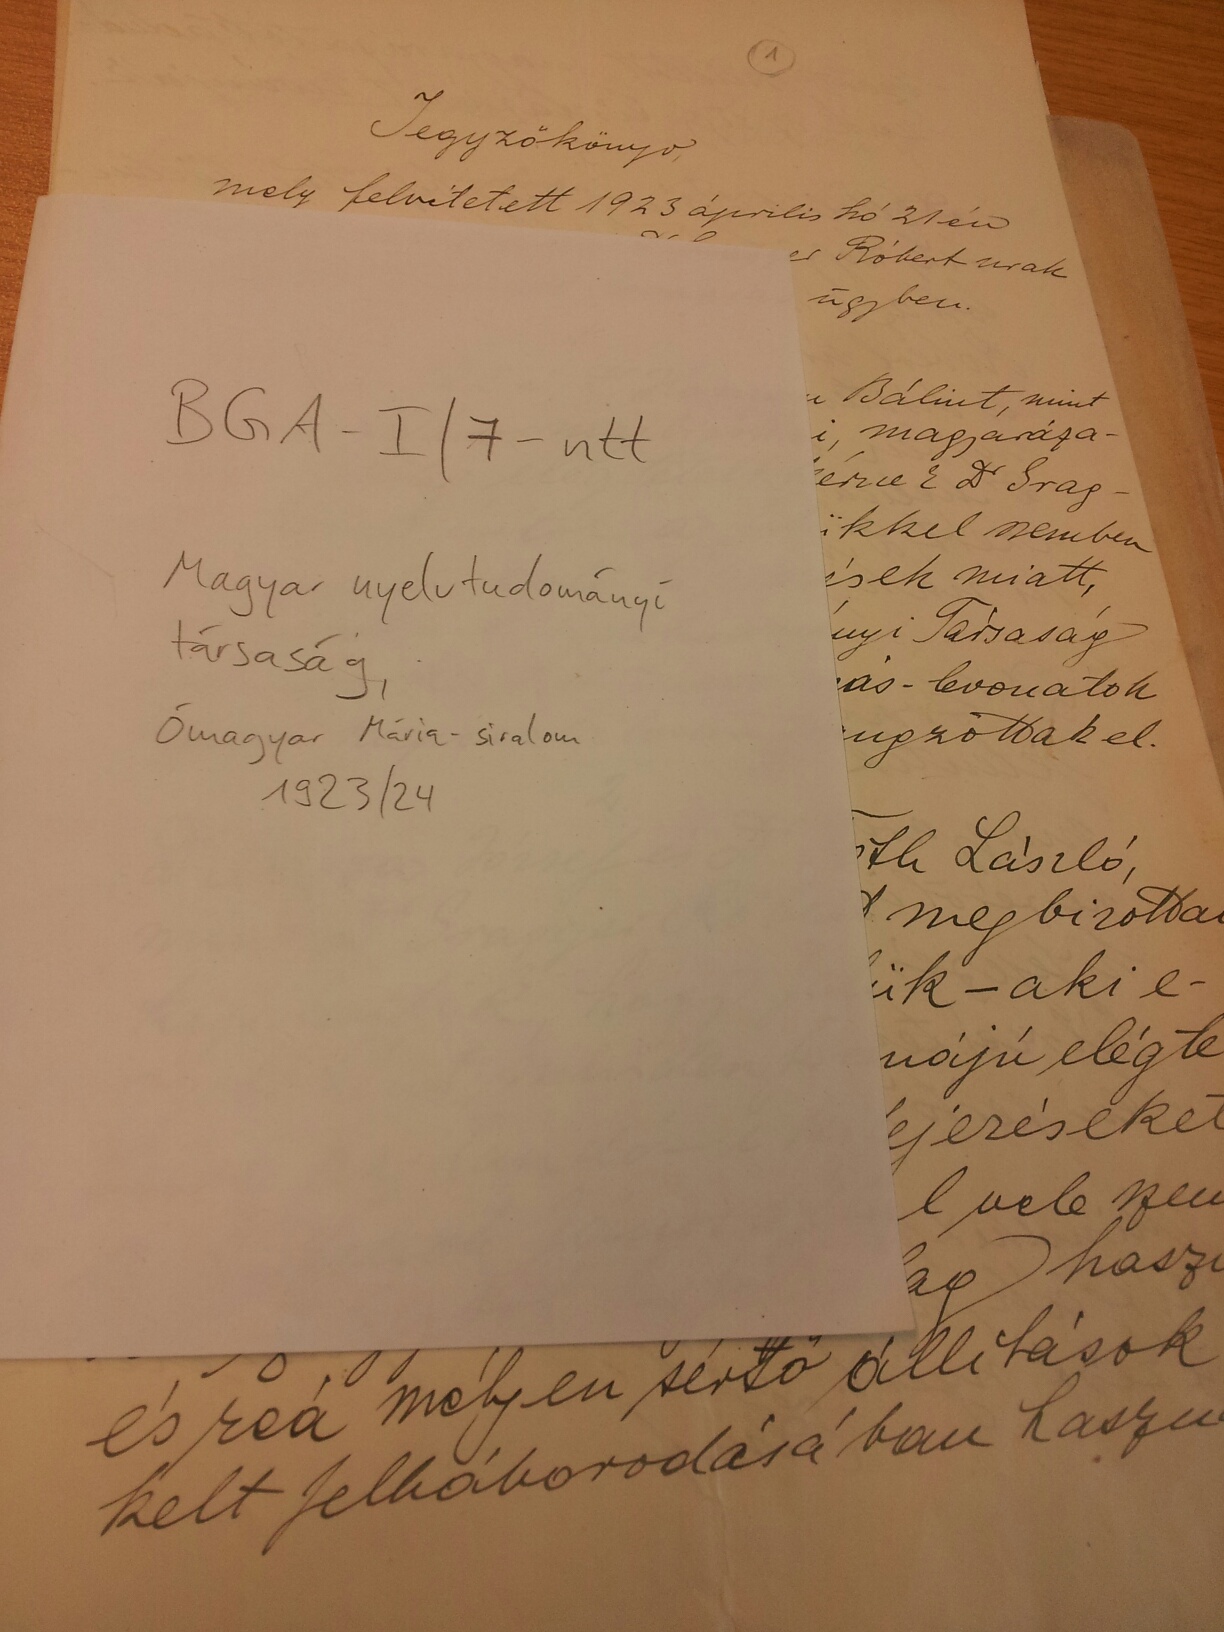 1
Jegyzőkönyv,
mely felvétetett 1923 április hó 21én
Róbert urak
ügyben.
Bálint, mint
i, magyaráza-
kérne? Dr Grag-
ükkel szemben
ések miatt,
ányi Társaság
ás-levonatok
el.
László,
megbizottai
ük – aki e-
májú elégté
fejezéseket
l vele szem
lag haszn
és reá mélyen sértő állitások
kelt felháborodásában haszn
BGA-I/7-ntt
Magyar nyelvtudományi
társaság,
Ómagyar Mária-siralom
1923/24